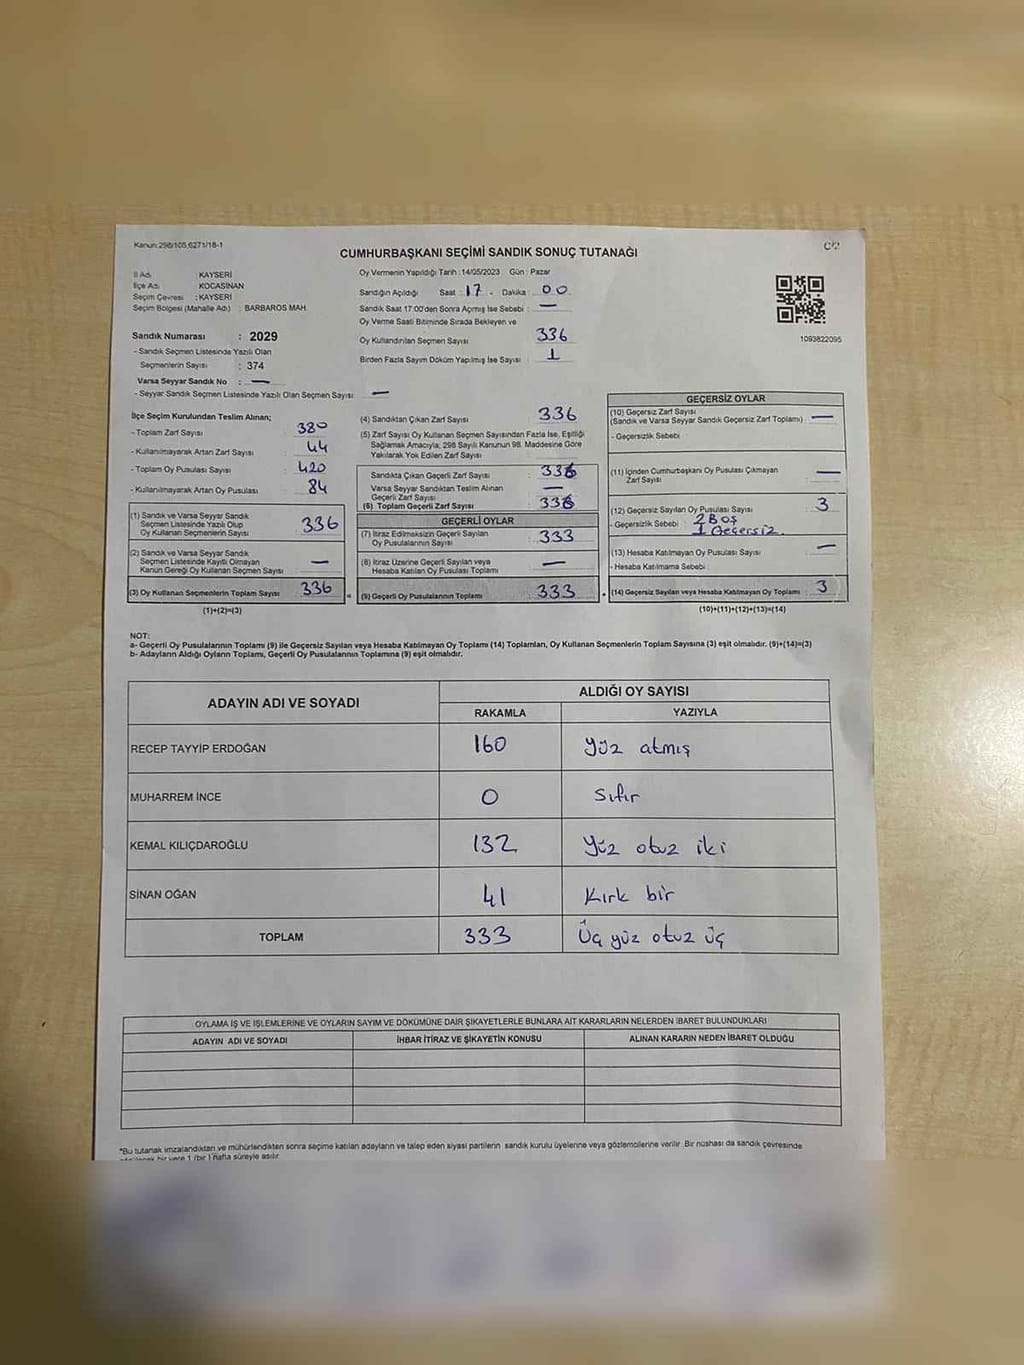 Kanun:298/105,6271/18-1
CUMHURBAŞKANI SEÇİMİ SANDIK SONUÇ TUTANAĞI
İl Adı KAYSERİ
İlçe Adı KOCASİNAN
Seçim Çevresi : KAYSERİ
Seçim Bölgesi (Mahalle Adı) : BARBAROS MAH.
Oy Vermenin Yapıldığı Tarih : 14/05/2023 Gün : Pazar
Sandığın Açıldığı Saat : 17 - Dakika : 00
Sandık Saat 17:00'den Sonra Açmış İse Sebebi : —
Oy Verme Saati Bitiminde Sırada Bekleyen ve
Oy Kullandırılan Seçmen Sayısı 336
Birden Fazla Sayım Döküm Yapılmış İse Sayısı : 1
1093822095
Sandık Numarası : 2029
- Sandık Seçmen Listesinde Yazılı Olan
Seçmenlerin Sayısı : 374
Varsa Seyyar Sandık No : —
- Seyyar Sandık Seçmen Listesinde Yazılı Olan Seçmen Sayısı : —
İlçe Seçim Kurulundan Teslim Alınan;
- Toplam Zarf Sayısı : 380
- Kullanılmayarak Artan Zarf Sayısı : 44
- Toplam Oy Pusulası Sayısı : 420
- Kullanılmayarak Artan Oy Pusulası : 84
(1) Sandık ve Varsa Seyyar Sandık
Seçmen Listesinde Yazılı Olup
Oy Kullanan Seçmenlerin Sayısı 336
(2) Sandık ve Varsa Seyyar Sandık
Seçmen Listesinde Kayıtlı Olmayan
Kanun Gereği Oy Kullanan Seçmen Sayısı —
(3) Oy Kullanan Seçmenlerin Toplam Sayısı 336
(1)+(2)=(3)
(4) Sandıktan Çıkan Zarf Sayısı : 336
(5) Zarf Sayısı Oy Kullanan Seçmen Sayısından Fazla İse, Eşitliği
Sağlamak Amacıyla, 298 Sayılı Kanunun 98. Maddesine Göre
Yakılarak Yok Edilen Zarf Sayısı
Sandıkta Çıkan Geçerli Zarf Sayısı 336
Varsa Seyyar Sandıktan Teslim Alınan
Geçerli Zarf Sayısı —
(6) Toplam Geçerli Zarf Sayısı 336
GEÇERLİ OYLAR
(7) İtiraz Edilmeksizin Geçerli Sayılan
Oy Pusulalarının Sayısı : 333
(8) İtiraz Üzerine Geçerli Sayılan veya
Hesaba Katılan Oy Pusulası Toplamı —
= (9) Geçerli Oy Pusulalarının Toplamı 333
GEÇERSİZ OYLAR
(10) Geçersiz Zarf Sayısı
(Sandık ve Varsa Seyyar Sandık Geçersiz Zarf Toplamı) : —
- Geçersizlik Sebebi
(11) İçinden Cumhurbaşkanı Oy Pusulası Çıkmayan
Zarf Sayısı —
(12) Geçersiz Sayılan Oy Pusulası Sayısı 3
- Geçersizlik Sebebi : 2 Boş
1 Geçersiz.
(13) Hesaba Katılmayan Oy Pusulası Sayısı —
- Hesaba Katılmama Sebebi :
+ (14) Geçersiz Sayılan veya Hesaba Katılmayan Oy Toplamı 3
(10)+(11)+(12)+(13)=(14)
NOT:
a- Geçerli Oy Pusulalarının Toplamı (9) ile Geçersiz Sayılan veya Hesaba Katılmayan Oy Toplamı (14) Toplamları, Oy Kullanan Seçmenlerin Toplam Sayısına (3) eşit olmalıdır. (9)+(14)=(3)
b- Adayların Aldığı Oyların Toplamı, Geçerli Oy Pusulalarının Toplamına (9) eşit olmalıdır.
ADAYIN ADI VE SOYADI ALDIĞI OY SAYISI
RAKAMLA YAZIYLA
RECEP TAYYİP ERDOĞAN 160 yüz atmış
MUHARREM İNCE 0 Sıfır
KEMAL KILIÇDAROĞLU 132 yüz otuz iki
SİNAN OĞAN 41 Kırk bir
TOPLAM 333 Üç yüz otuz üç
OYLAMA İŞ VE İŞLEMLERİNE VE OYLARIN SAYIM VE DÖKÜMÜNE DAİR ŞİKAYETLERLE BUNLARA AİT KARARLARIN NELERDEN İBARET BULUNDUKLARI
ADAYIN ADI VE SOYADI İHBAR İTİRAZ VE ŞİKAYETİN KONUSU ALINAN KARARIN NEDEN İBARET OLDUĞU
*Bu tutanak imzalandıktan ve mühürlendikten sonra seçime katılan adayların ve talep eden siyasi partilerin sandık kurulu üyelerine veya gözlemcilerine verilir. Bir nüshası da sandık çevresinde
bir yere 1 (bir) hafta süreyle asılır.